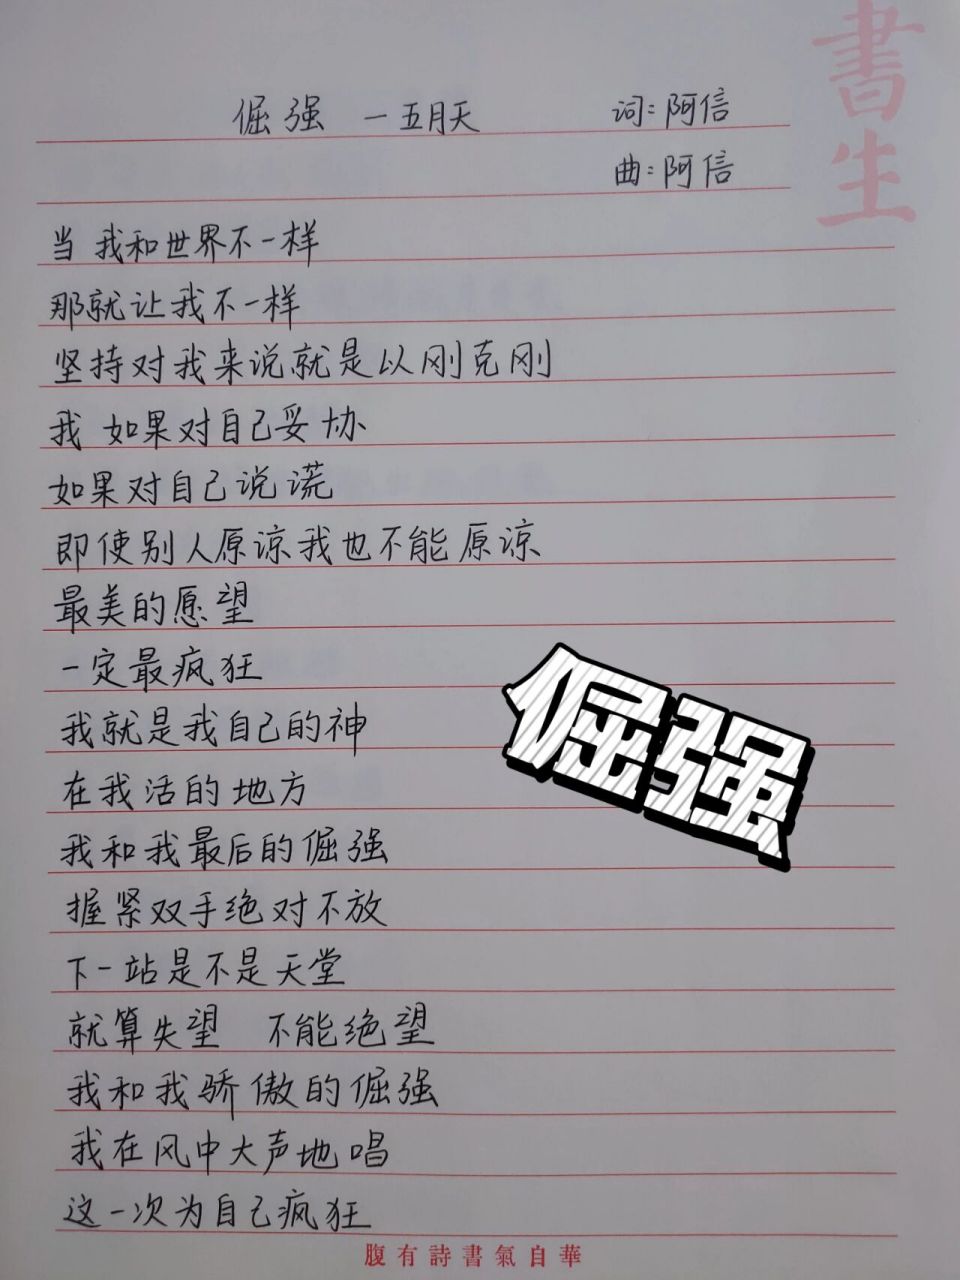 書生
倔强 一五月天 词:阿信
曲:阿信
当 我和世界不一样
那就让我不一样
坚持对我来说就是以刚克刚
我 如果对自己妥协
如果对自己说谎
即使别人原谅我也不能原谅
最美的愿望
一定最疯狂
我就是我自己的神
在我活的地方
我和我最后的倔强
握紧双手绝对不放
下一站是不是天堂
就算失望 不能绝望
我和我骄傲的倔强
我在风中大声地唱
这一次为自己疯狂
倔强
腹有詩書氣自華